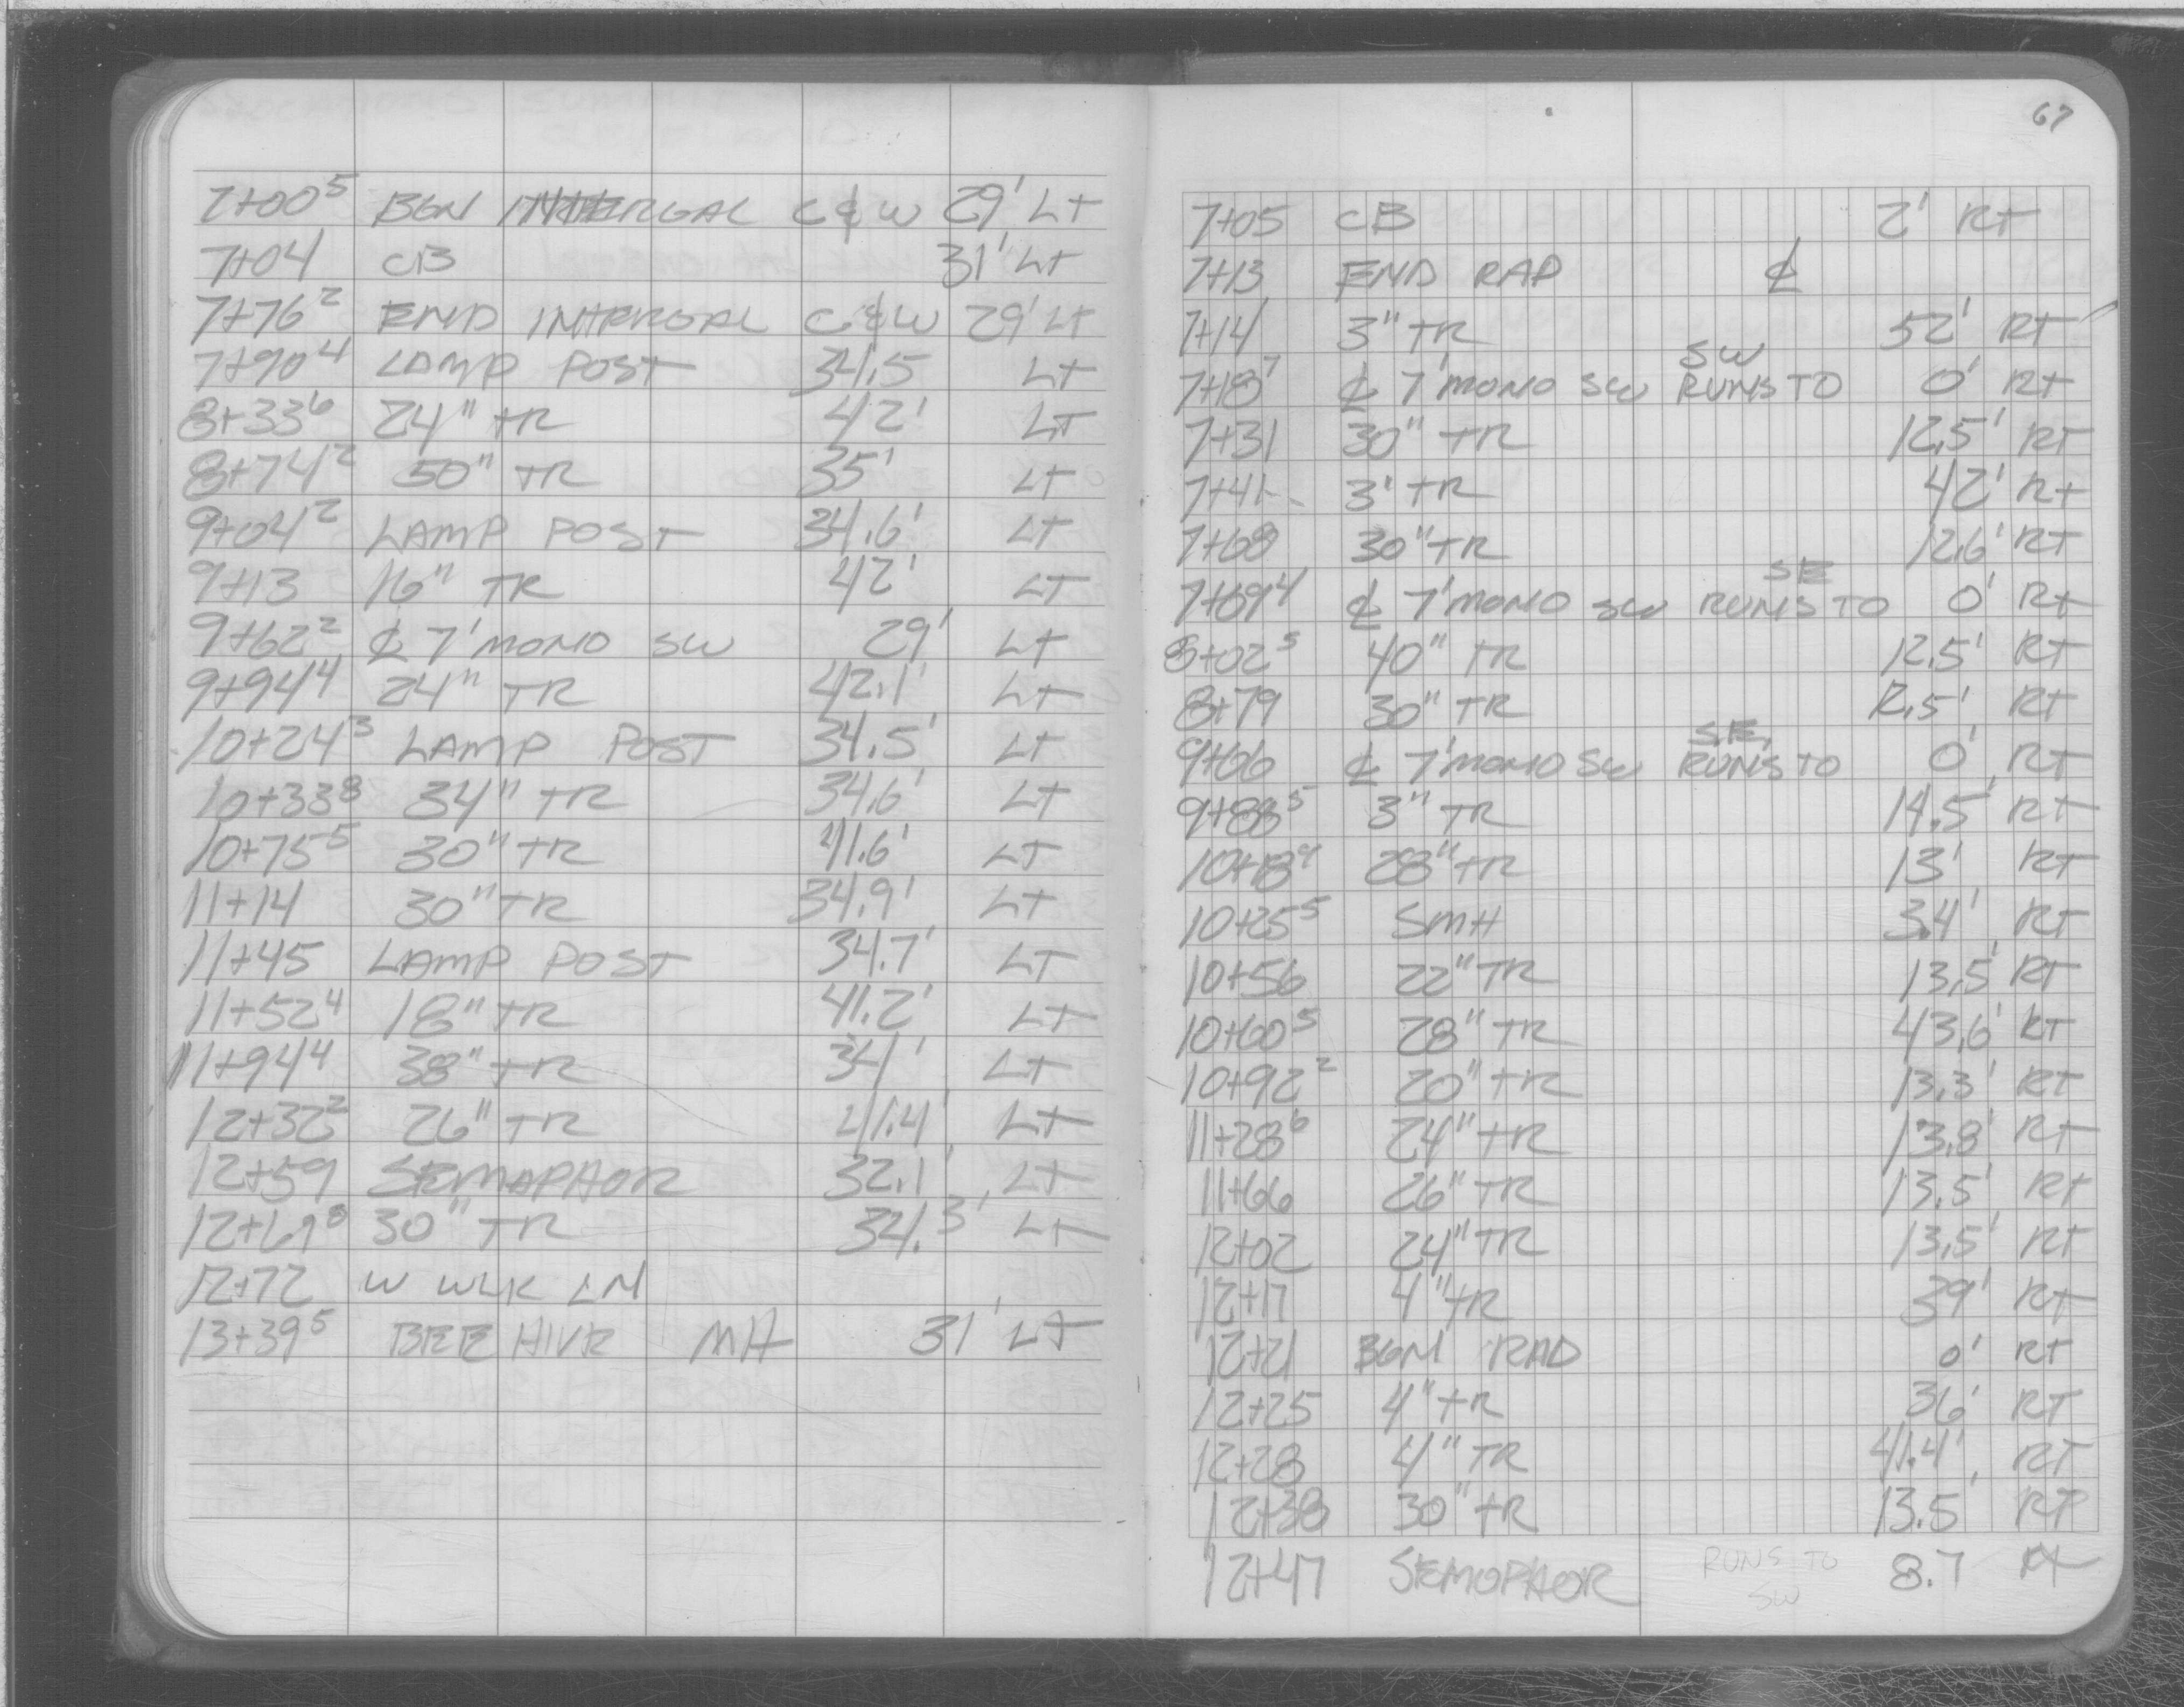 7+00⁵ BGN INTERGAL C & W 29' Lt
7+04 CB 31' Lt
7+76² END INTERGAL C & W 29' Lt
7+90⁴ LAMP POST 34.5 Lt
8+33⁶ 24" TR 42' Lt
8+74² 50" TR 35' Lt
9+04² LAMP POST 34.6' Lt
9+13 16" TR 42' LT
9+62² ℄ 7' MONO SW 29' Lt
9+94⁴ 24" TR 42.1' Lt
10+24³ LAMP POST 34.5' Lt
10+33⁸ 34" TR 34.6' Lt
10+75⁵ 30" TR 41.6' LT
11+14 30" TR 34.9' Lt
11+45 LAMP POST 34.7' LT
11+52⁴ 18" TR 41.2' Lt
11+94⁴ 38" TR 34' Lt
12+32² 26" TR 41.4' Lt
12+59 SEMAPHOR 32.1' Lt
12+69⁸ 30" TR 34.3' Lt
12+72 W WLK LN
13+39⁵ BEE HIVE MH 31' LT
67
7+05 CB 2' Rt
7+13 END RAD ℄
7+14 3" TR 52' RT
SW
7+18⁷ ℄ 7' MONO SW RUNS TO 0' Rt
7+31 30" TR 12.5' RT
7+41 3' TR 42' Rt
7+68 30" TR 12.6' RT
SE
7+69⁴ ℄ 7' MONO SW RUNS TO 0' Rt
8+02⁵ 40" TR 12.5' RT
8+79 30" TR 12.5' RT
S.E.
9+66 ℄ 7' MONO SW RUNS TO 0' RT
9+88⁵ 3" TR 14.5' RT
10+18⁴ 28" TR 13' RT
10+25⁵ SMH 3.4' RT
10+56 22" TR 13.5' RT
10+60⁵ 28" TR 43.6' RT
10+92² 20" TR 13.3' RT
11+28⁶ 24" TR 13.8' RT
11+66 26" TR 13.5' RT
12+02 24" TR 13.5' RT
12+17 4" TR 39' RT
12+21 BGN RAD 0' RT
12+25 4" TR 36' RT
12+28 4" TR 41.4' RT
12+38 30" TR 13.5 RT
12+47 SEMOPHOR RUNS TO 8.7 Rt
SW